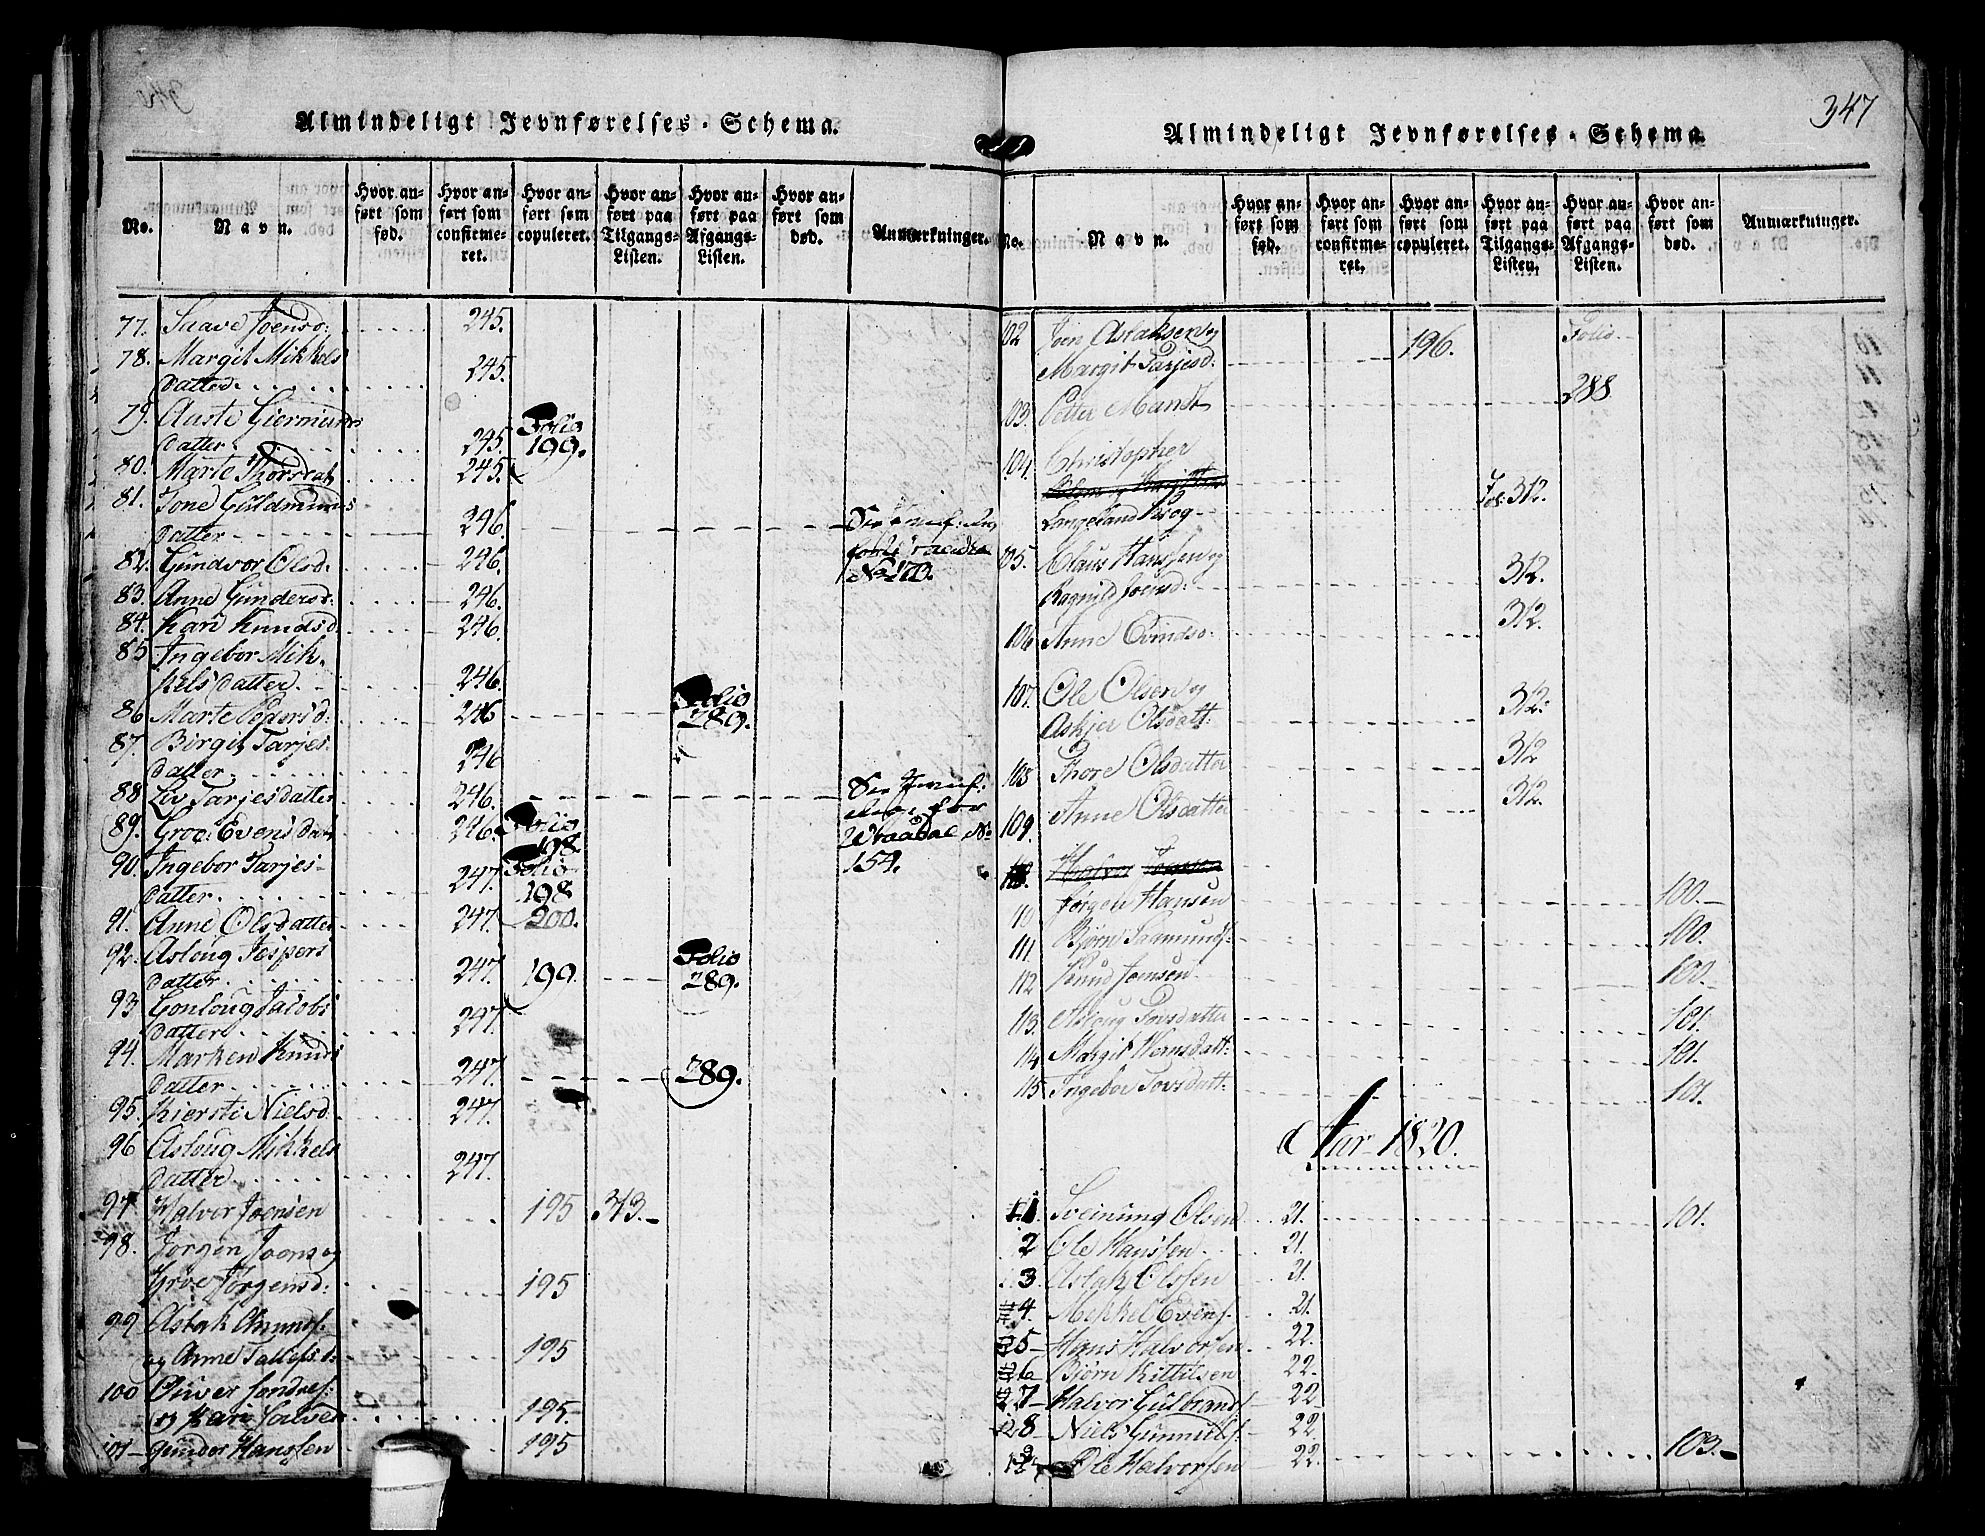 Almindeligt Jevnførelses-Schema.
No.
Navn.
Hvor anført som fød.
Hvor anført som confirmeret.
Hvor anført som copuleret.
Hvor anført paa Tilgangs-Listen.
Hvor anført paa Afgangs-Listen.
Hvor anført som død.
Anmærkninger.
77. Saave Joensd: 245.
78. Margit Mikkels
datter 245.
79. Aaste Giermunds
datter 245. Folio 199.
80. Marte Thorsdat 245.
81. Tone Guldmunds
datter 246.
82. Gundvor Olsd. 246.
83. Anne Gundersd: 246.
84. Kari Knudsd 246.
85 Ingebor Mik-
kels datter 246.
86 Marte Pedersd: 246 Folio 289.
87. Birgit Tarjes-
datter 246
88 Liv Tarjesdatter 246. No 154.
89. Groe Evens dat 246. Folio 198.
90. Ingebor Tarjes-
datter 247. Folio 198
91. Anne Olsdatter 247. 200.
92. Asloug Jespers
datter 247. 199. Folio 289.
93 Gonloug Jacobs
datter 247.
94. Marken Knuds
datter 247. 289.
95. Kiersti Nielsd. 247.
96 Asloug Mikkels
datter 247.
97 Halvor Joensen 195 313.
98. Jørgen Joens og
Groe Jørgensd: 195
99 Aslak Amunds:
og Anne Tallefsd: 195
100 Oliver Sondref:
og Kari Halvord 195.
101 Gunder Hanssen 195
347
Almindeligt Jevnførelses-Schema.
No.
Navn.
Hvor anført som fød.
Hvor anført som confirmeret.
Hvor anført som copuleret.
Hvor anført paa Tilgangs-Listen.
Hvor anført paa Afgangs-Listen.
Hvor anført som død.
Anmærkninger.
102 Joen Aslaksen og Folio
Margit Tarjesd: 196.
103. Petter Mandt 288
104. Christopher
Langeland Krog Fol: 312.
105. Claus Hanssen og
Ragnild Joensd: 312.
106 Anne Evindsd: 312.
107. Ole Olsen og
Askjer Olsdatt: 312.
108 Thore Olsdatter 312
109. Anne Olsdatter 312.
Halvor Joensen
110 Jørgen Hansen 100.
111 Bjørn Saamunds: 100.
112 Knud Joensen 100.
113. Asloug Tovsdatter 101.
114 Margit Hansdatt: 101.
115. Ingebor Tovsdatt: 101.
Aar 1820.
1. Sveinung Olsen 21. 101.
2 Ole Hanssen 21.
3. Aslak Olssen 21.
4. Mikkel Evens: 21.
5 Hans Halvorsen 22.
6 Bjørn Kittilsen 22.
7 Halvor Gulbrands 22
8 Niels Gunnulf: 22.
9 Ole Halvorsen 22. 103.